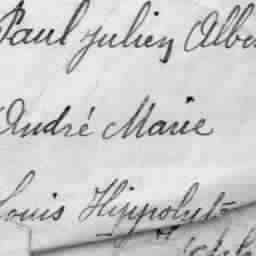 Paul Julien Albe
André Marie
Louis Hippolyte